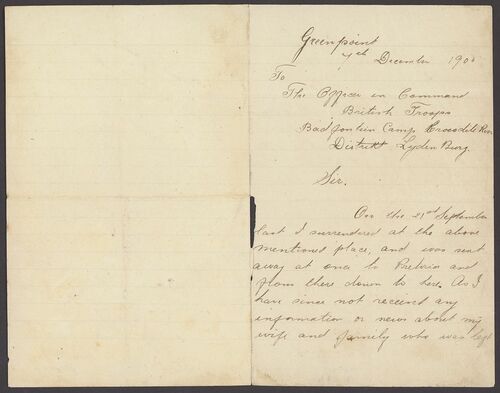 Greenpoint
4th December 190
To
The Officer in Command
British Troops
Badfontein Camp Crocodile River
Distrikt Lyden Burg.
Sir.
On the 21st September
last I surrendered at the above
mentioned place, and was sent
away at once to Pretoria and
from there down to here. As I
have since not received any
information or news about my
wife and family who was left